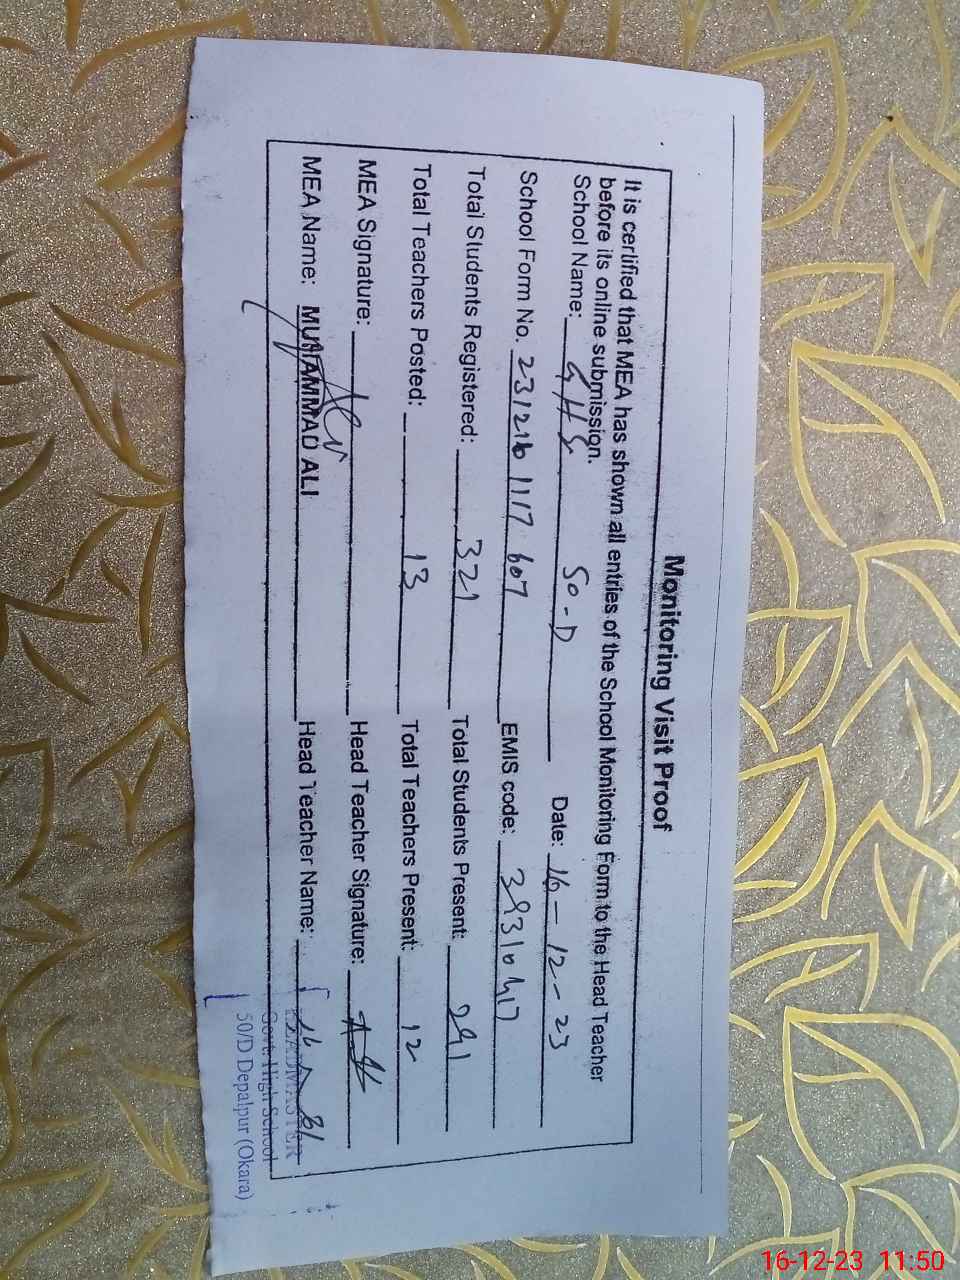 Monitoring Visit Proof
It is certified that MEA has shown all entries of the School Monitoring Form to the Head Teacher
before its online submission.
School Name: GHS 50-D Date: 16-12-23
School Form No. 231216 1117 607 EMIS code:
Total Students Registered: 321 Total Students Present: 291
Total Teachers Posted: 13 Total Teachers Present: 12
MEA Signature: Head Teacher Signature:
MEA Name: MUHAMMAD ALI Head Teacher Name:
HEADMASTER
Govt. High School
50/D Depalpur (Okara)
16-12-23 11:50